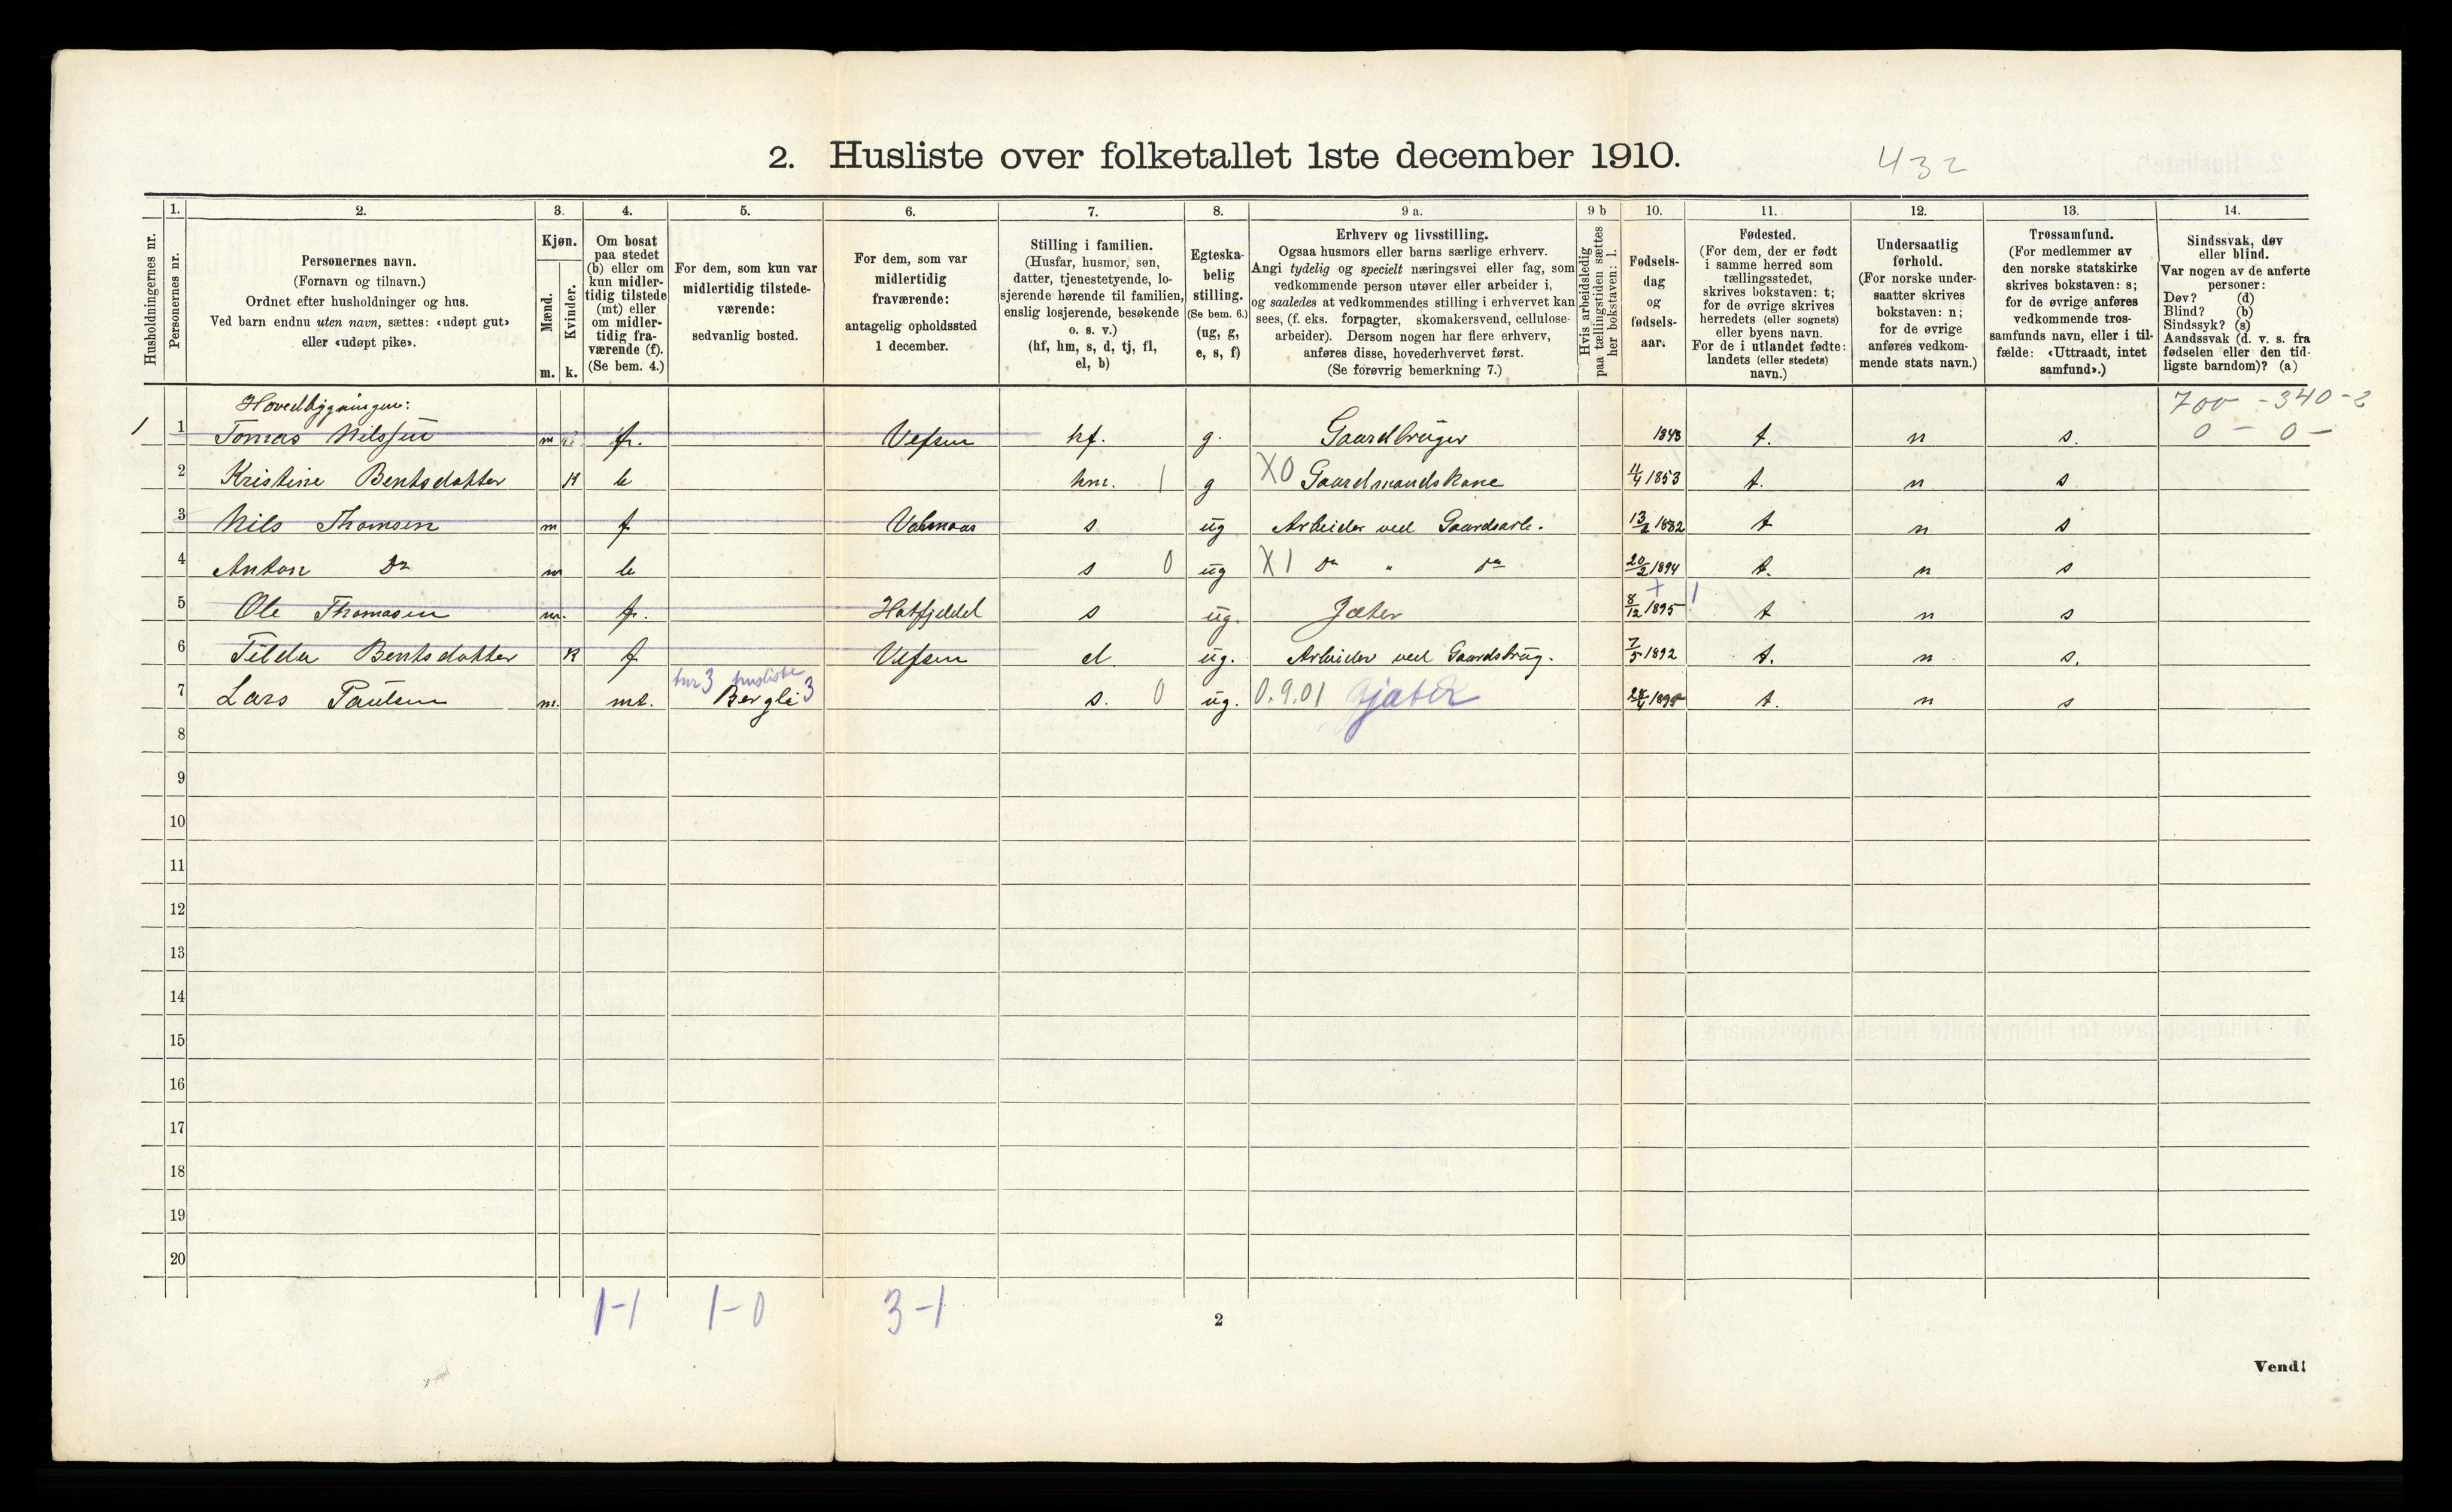 2. Husliste over folketallet 1ste december 1910.
432
1. 2. 3. 4. 5. 6. 7. 8. 9 a. 9 b 10. 11. 12. 13. 14.
Husholdningernes nr.
Personernes nr.
Personernes navn.
(Fornavn og tilnavn.)
Ordnet efter husholdninger og hus.
Ved barn endnu uten navn, sættes: «udøpt gut»
eller «udøpt pike».
Kjøn.
Mænd.
Kvinder.
m. k.
Om bosat
paa stedet
(b) eller om
kun midler-
tidig tilstede
(mt) eller
om midler-
tidig fra-
værende (f).
(Se bem. 4.)
For dem, som kun var
midlertidig tilstede-
værende:
sedvanlig bosted.
For dem, som var
midlertidig
fraværende:
antagelig opholdssted
1 december.
Stilling i familien.
(Husfar, husmor, søn,
datter, tjenestetyende, lo-
sjerende hørende til familien,
enslig losjerende, besøkende
o. s. v.)
(hf, hm, s, d, tj, fl,
el, b)
Egteska-
belig
stilling.
(Se bem. 6.)
(ug, g,
e, s, f)
Erhverv og livsstilling.
Ogsaa husmors eller barns særlige erhverv.
Angi tydelig og specielt næringsvei eller fag, som
vedkommende person utøver eller arbeider i,
og saaledes at vedkommendes stilling i erhvervet kan
sees, (f. eks. forpagter, skomakersvend, cellulose-
arbeider). Dersom nogen har flere erhverv,
anføres disse, hovederhvervet først.
(Se forøvrig bemerkning 7.)
Hvis arbeidsledig
paa tællingstiden sættes
her bokstaven: l.
Fødsels-
dag
og
fødsels-
aar.
Fødested.
(For dem, der er født
i samme herred som
tællingsstedet,
skrives bokstaven: t;
for de øvrige skrives
herredets (eller sognets)
eller byens navn.
For de i utlandet fødte:
landets (eller stedets)
navn.)
Undersaatlig
forhold.
(For norske under-
saatter skrives
bokstaven: n;
for de øvrige
anføres vedkom-
mende stats navn.)
Trossamfund.
(For medlemmer av
den norske statskirke
skrives bokstaven: s;
for de øvrige anføres
vedkommende tros-
samfunds navn, eller i til-
fælde: «Uttraadt, intet
samfund».)
Sindssvak, døv
eller blind.
Var nogen av de anførte
personer:
Døv? (d)
Blind? (b)
Sindssyk? (s)
Aandssvak (d. v. s. fra
fødselen eller den tid-
ligste barndom)? (a)
Hovedbygningen: 700 - 340 - 2
1 1 Tomas Nilssen m f. Vefsen hf. g. Gaardbruger 1843 t. n s. 0 - 0 -
2 Kristine Bentsdatter K b hm. 1 g X0 Gaardmandskone 4/4 1853 t. n s
3 Nils Thomsen m f s ug Arbeider ved Gaardsarb. 13/2 1882 t n s
4 Anton Do m b s 0 ug X1 Do " do 20/2 1894 t. n s
5 Ole Thomasen m. f. Hatfjeldd s ug. Jæter 8/12 1895 1 t n s
6 Tilda Bentsdatter K f Vefsen d ug. Arbeider ved Gaardsbrug. 7/5 1892 t. n s.
husliste
7 Lars Paulsen m. mt. Bergli 3 s. 0 ug. 0.9.01 Gjæter t. n s
8
9
10
11
12
13
14
15
16
17
18
19
20
1-1 1-0 3-1
2
Vend!